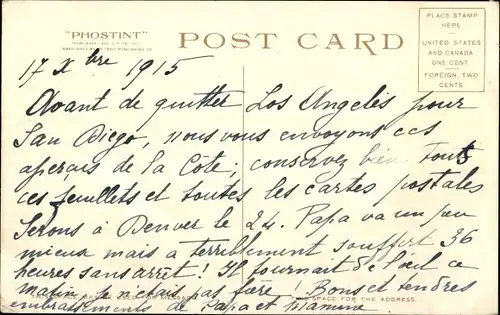 "PHOSTINT"
POST CARD
PLACE STAMP
HERE
UNITED STATES
AND CANADA
ONE CENT
FOREIGN, TWO
CENTS
17 Xbre 1915
Avant de quitter Los Angelès pour
San Diego, nous vous envoyons ces
aperçus de la Côte; conservez bien tous
ces feuillets et toutes les cartes postales
Serons à Denver le 24. Papa va un peu
mieux mais a terriblement souffert 36
heures sans arrêt! Il tournait de l'œil ce
matin je n'étais pas fière! Bons et tendres
embrassements de Papa et Mamine
SPACE FOR THE ADDRESS.